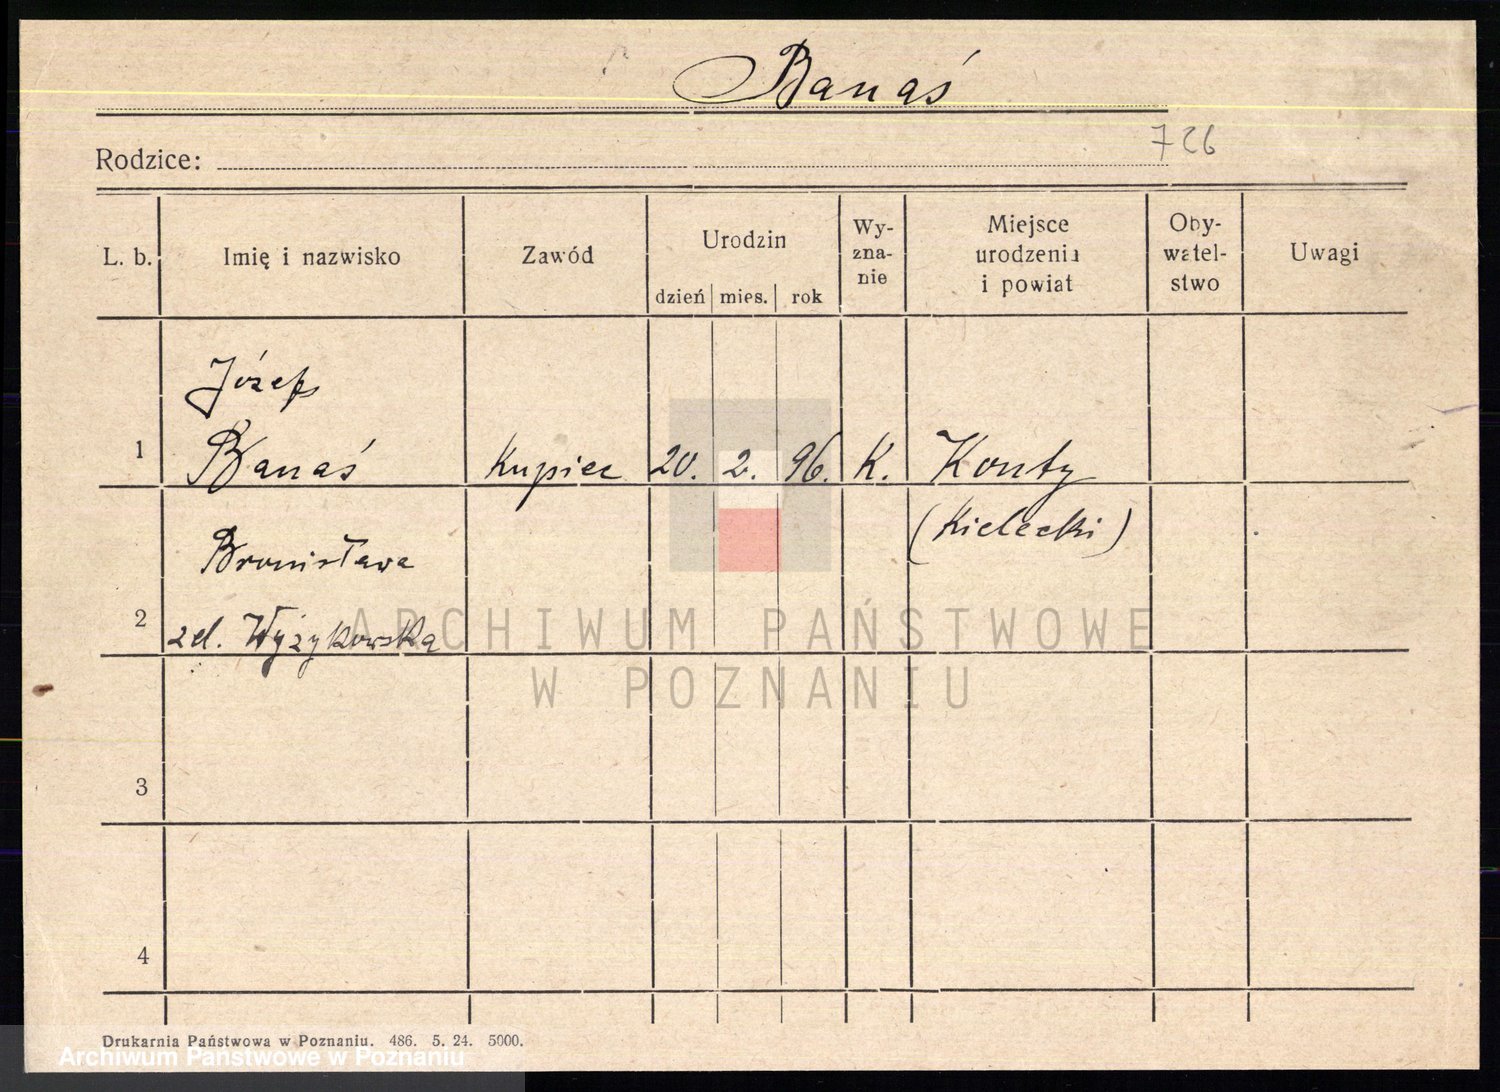 Banaś
726
Rodzice:
L. b.
Imię i nazwisko
Zawód
Urodzin
dzień mies. rok
Wy-
zna-
nie
Miejsce
urodzenia
i powiat
Oby-
watel-
stwo
Uwagi
Józef
1 Banaś Kupiec 20. 2. 96. K. Konty
(Kielecki)
Bronisława
2 zd. Wyżykowska
ARCHIWUM PAŃSTWOWE
W POZNANIU
3
4
Drukarnia Państwowa w Poznaniu. 486. 5. 24. 5000.
Archiwum Państwowe w Poznaniu